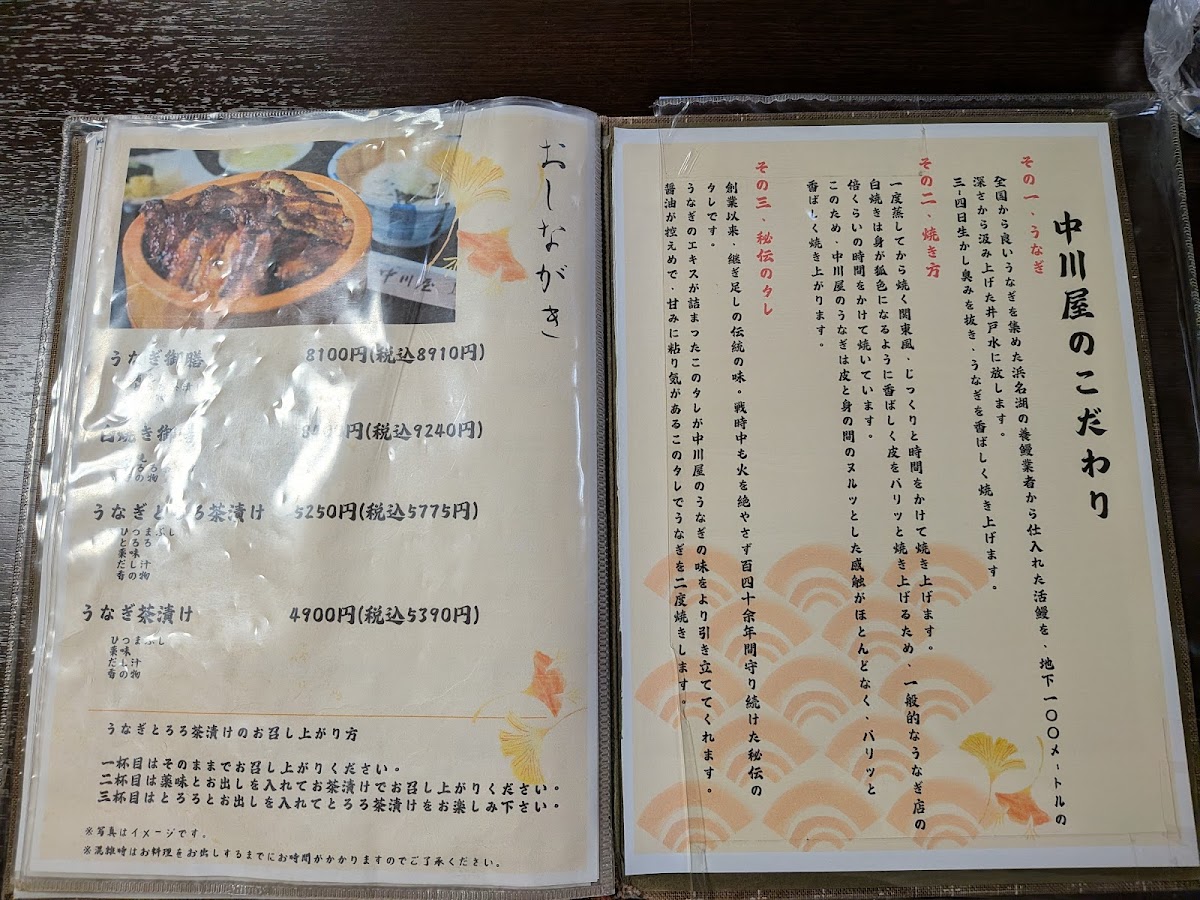 おしながき
中川屋
うなぎ御膳 8100円(税込8910円)
白焼き御膳 (税込9240円)
うなぎとろろ茶漬け 5250円(税込5775円)
ひつまぶし
とろろ
薬味
だし汁
香の物
うなぎ茶漬け 4900円(税込5390円)
ひつまぶし
薬味
だし汁
香の物
うなぎとろろ茶漬けのお召し上がり方
一杯目はそのままでお召し上がりください。
二杯目は薬味とお出しを入れてお茶漬けでお召し上がりください。
三杯目はとろろとお出しを入れてとろろ茶漬けをお楽しみ下さい。
※写真はイメージです。
※混雑時はお料理をお出しするまでにお時間がかかりますのでご了承ください。
中川屋のこだわり
その一、うなぎ
全国から良いうなぎを集めた浜名湖の養鰻業者から仕入れた活鰻を、地下一〇〇メートルの
深さから汲み上げた井戸水に放します。
三-四日生かし臭みを抜き、うなぎを香ばしく焼き上げます。
その二、焼き方
一度蒸してから焼く関東風、じっくりと時間をかけて焼き上げます。
白焼きは身が狐色になるように香ばしく皮をパリッと焼き上げるため、一般的なうなぎ店の
倍くらいの時間をかけて焼いています。
このため、中川屋のうなぎは皮と身の間のヌルッとした感触がほとんどなく、パリッと
香ばしく焼き上がります。
その三、秘伝のタレ
創業以来、継ぎ足しの伝統の味。戦時中も火を絶やさず百四十余年間守り続けた秘伝の
タレです。
うなぎのエキスが詰まったこのタレが中川屋のうなぎの味をより引き立ててくれます。
醤油が控えめで、甘みに粘り気があるこのタレでうなぎを二度焼きします。